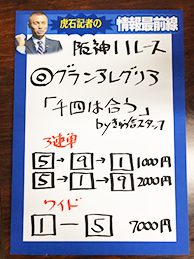 虎石記者の
情報最前線
阪神11レース
◎ブランアレグリア
「千四は合う」
byきゅう舎スタッフ
3連単
5→9→1 1000円
5→1→9 2000円
ワイド
1-5 7000円